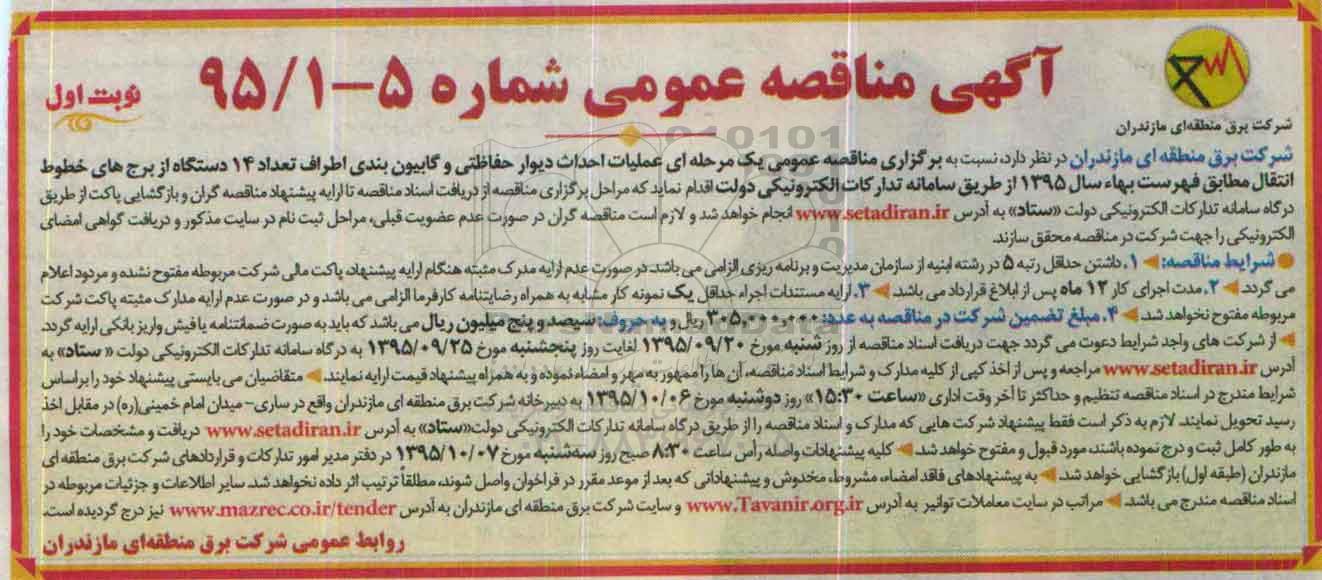 آگهی مناقصه عمومی شماره ۵-۹۵/۱
نوبت اول
شرکت برق منطقه‌ای مازندران
شرکت برق منطقه ای مازندران در نظر دارد، نسبت به برگزاری مناقصه عمومی یک مرحله ای عملیات احداث دیوار حفاظتی و گابیون بندی اطراف تعداد ۱۴ دستگاه از برج های خطوط
انتقال مطابق فهرست بهاء سال ۱۳۹۵ از طریق سامانه تدارکات الکترونیکی دولت اقدام نماید که مراحل برگزاری مناقصه از دریافت اسناد مناقصه تا ارایه پیشنهاد مناقصه گران و بازگشایی پاکت از طریق
درگاه سامانه تدارکات الکترونیکی دولت «ستاد» به آدرس www.setadiran.ir انجام خواهد شد و لازم است مناقصه گران در صورت عدم عضویت قبلی، مراحل ثبت نام در سایت مذکور و دریافت گواهی امضای
الکترونیکی را جهت شرکت در مناقصه محقق سازند.
شرایط مناقصه: ۱. داشتن حداقل رتبه ۵ در رشته ابنیه از سازمان مدیریت و برنامه ریزی الزامی می باشد. در صورت عدم ارایه مدرک مثبته هنگام ارایه پیشنهاد، پاکت مالی شرکت مربوطه مفتوح نشده و مردود اعلام
می گردد. ۲. مدت اجرای کار ۱۲ ماه پس از ابلاغ قرارداد می باشد. ۳. ارایه مستندات اجراء حداقل یک نمونه کار مشابه به همراه رضایتنامه کارفرما الزامی می باشد و در صورت عدم ارایه مدارک مثبته پاکت شرکت
مربوطه مفتوح نخواهد شد. ۴. مبلغ تضمین شرکت در مناقصه به عدد: ۳۰۵,۰۰۰,۰۰۰ ریال و به حروف: سیصد و پنج میلیون ریال می باشد که باید به صورت ضمانتنامه یا فیش واریز بانکی ارایه گردد.
از شرکت های واجد شرایط دعوت می گردد جهت دریافت اسناد مناقصه از روز شنبه مورخ ۱۳۹۵/۰۹/۲۰ لغایت روز پنجشنبه مورخ ۱۳۹۵/۰۹/۲۵ به درگاه سامانه تدارکات الکترونیکی دولت « ستاد» به
آدرس www.setadiran.ir مراجعه و پس از اخذ کپی از کلیه مدارک و شرایط اسناد مناقصه، آن ها را ممهور به مهر و امضاء نموده و به همراه پیشنهاد قیمت ارایه نمایند. متقاضیان می بایستی پیشنهاد خود را براساس
شرایط مندرج در اسناد مناقصه تنظیم و حداکثر تا آخر وقت اداری «ساعت ۱۵:۳۰» روز دوشنبه مورخ ۱۳۹۵/۱۰/۰۶ به دبیرخانه شرکت برق منطقه ای مازندران واقع در ساری- میدان امام خمینی(ره) در مقابل اخذ
رسید تحویل نمایند. لازم به ذکر است فقط پیشنهاد شرکت هایی که مدارک و اسناد مناقصه را از طریق درگاه سامانه تدارکات الکترونیکی دولت«ستاد» به آدرس www.setadiran.ir دریافت و مشخصات خود را
به طور کامل ثبت و درج نموده باشند، مورد قبول و مفتوح خواهد شد. کلیه پیشنهادات واصله رأس ساعت ۸:۳۰ صبح روز سه‌شنبه مورخ ۱۳۹۵/۱۰/۰۷ در دفتر مدیر امور تدارکات و قراردادهای شرکت برق منطقه ای
مازندران (طبقه اول) بازگشایی خواهد شد. به پیشنهادهای فاقد امضاء، مشروط، مخدوش و پیشنهاداتی که بعد از موعد مقرر در فراخوان واصل شوند، مطلقاً ترتیب اثر داده نخواهد شد. سایر اطلاعات و جزئیات مربوطه در
اسناد مناقصه مندرج می باشد. مراتب در سایت معاملات توانیر به آدرس www.Tavanir.org.ir و سایت شرکت برق منطقه ای مازندران به آدرس www.mazrec.co.ir/tender نیز درج گردیده است.
روابط عمومی شرکت برق منطقه‌ای مازندران